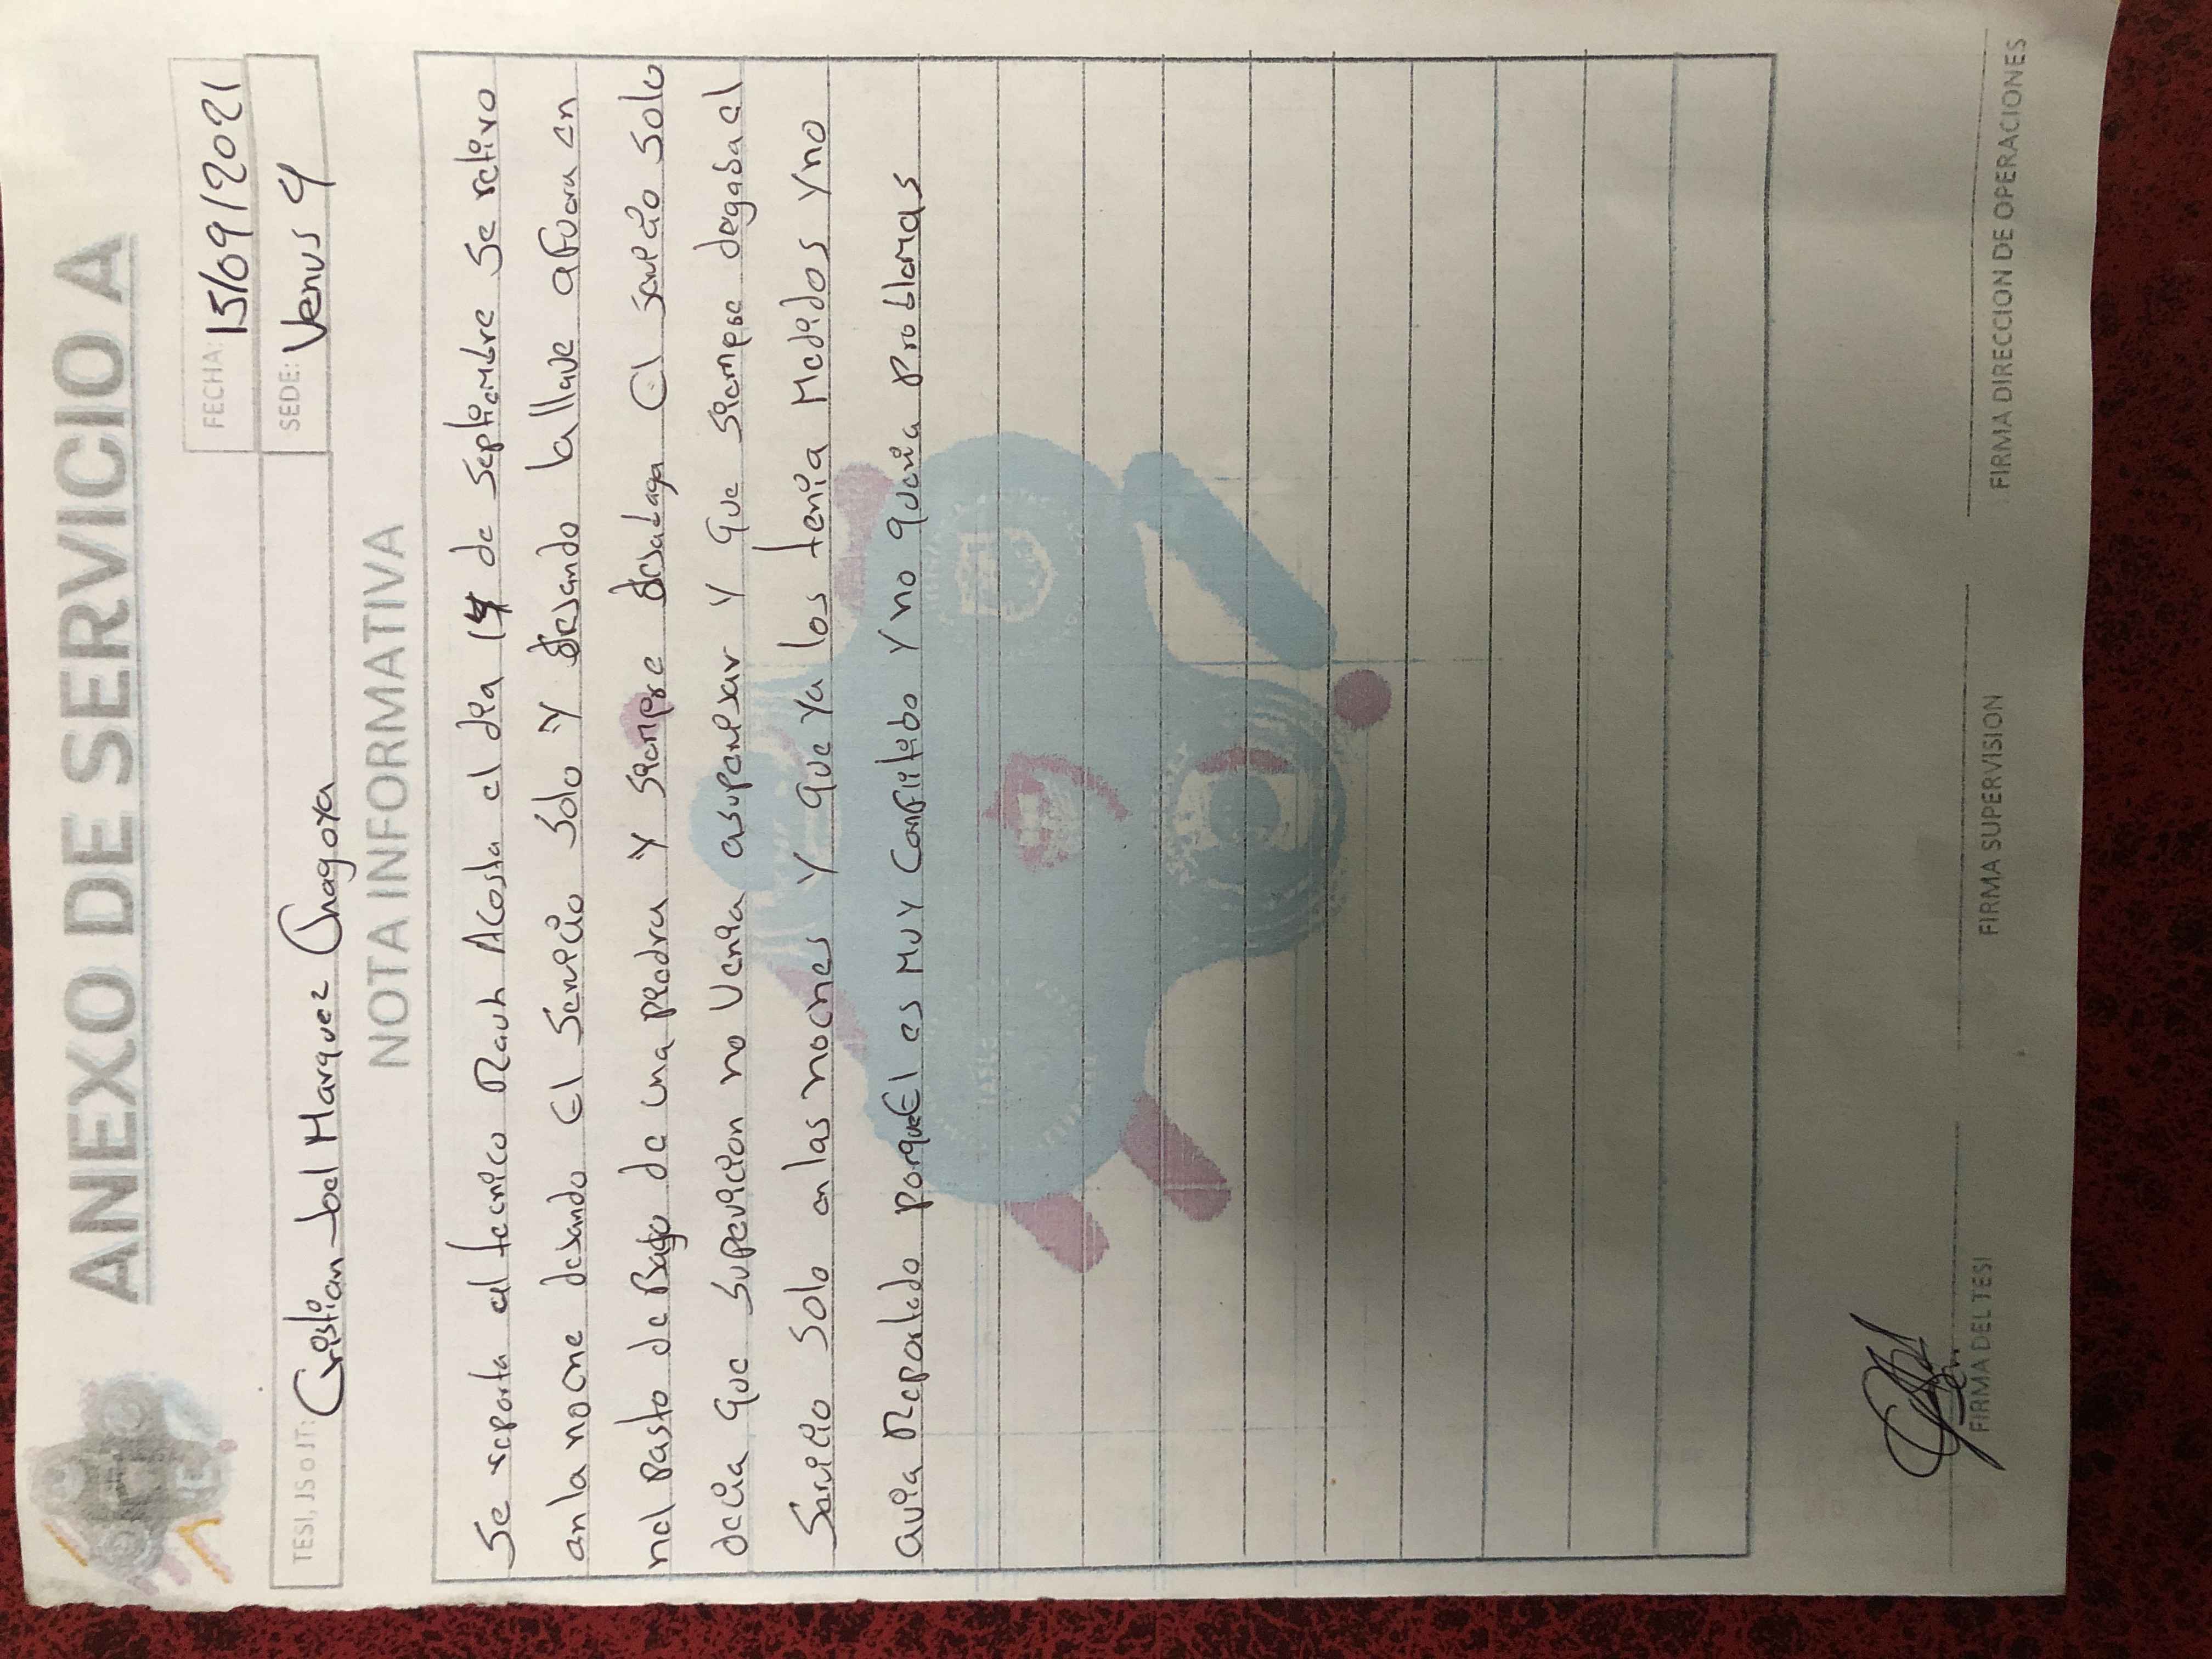 ANEXO DE SERVICIO A
FECHA: 15/09/2021
TESI, JS O JT: Cristian Joel Marquez Onagoya
SEDE: Venus 4
NOTA INFORMATIVA
Se reporta al tecnico Raul Acosta el dia 14 de septiembre se retiro
en la noche desando El Servicio Solo y desando la llave afuera en
nel pasto de Bajo de una piedra y siempre desadaga El servicio solo
decia que supervicion no Venia asupervisar y que siempre degaba el
Servicio Solo en las noches y que ya los tenia Medidos y no
avia Reportado porque El es muy Conflitibo y no queria Problemas
FIRMA DEL TESI
FIRMA SUPERVISION
FIRMA DIRECCION DE OPERACIONES